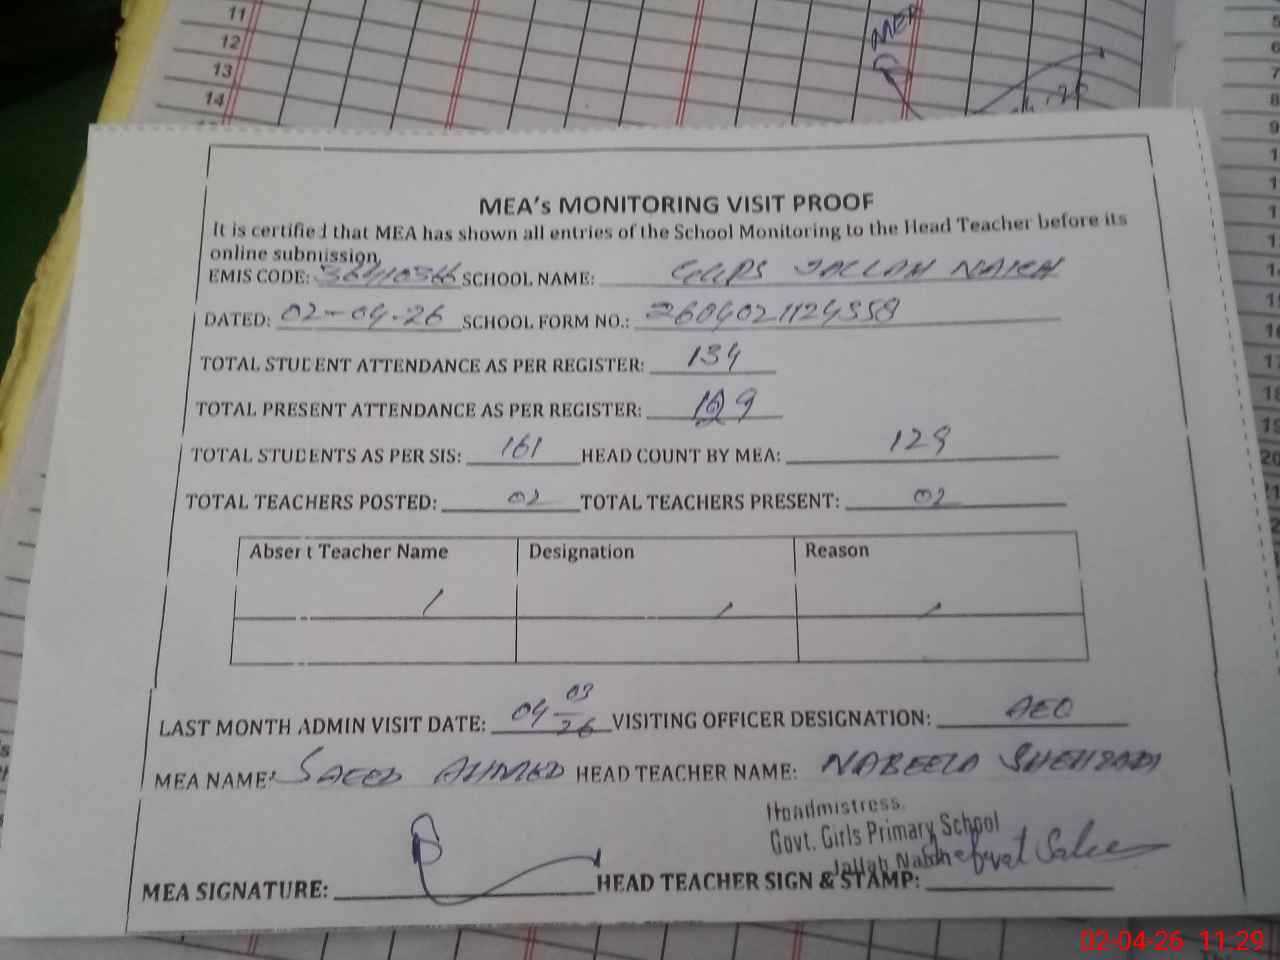 11
12
13
14
MEA
MEA's MONITORING VISIT PROOF
It is certified that MEA has shown all entries of the School Monitoring to the Head Teacher before its
online submission
EMIS CODE: SCHOOL NAME: GGPS JALLAH NAICH
DATED: 02-04-26 SCHOOL FORM NO.: 2604021124558
TOTAL STUDENT ATTENDANCE AS PER REGISTER: 134
TOTAL PRESENT ATTENDANCE AS PER REGISTER: 129
TOTAL STUDENTS AS PER SIS: 161 HEAD COUNT BY MEA: 129
TOTAL TEACHERS POSTED: 02 TOTAL TEACHERS PRESENT: 02
Absent Teacher Name Designation Reason
/ / /
LAST MONTH ADMIN VISIT DATE: 04 03 26 VISITING OFFICER DESIGNATION: AEO
MEA NAME: SAEED AHMED HEAD TEACHER NAME: NABEELA SHEHZADI
Headmistress.
Govt. Girls Primary School
Jallah
MEA SIGNATURE: HEAD TEACHER SIGN & STAMP:
02-04-26 11:29